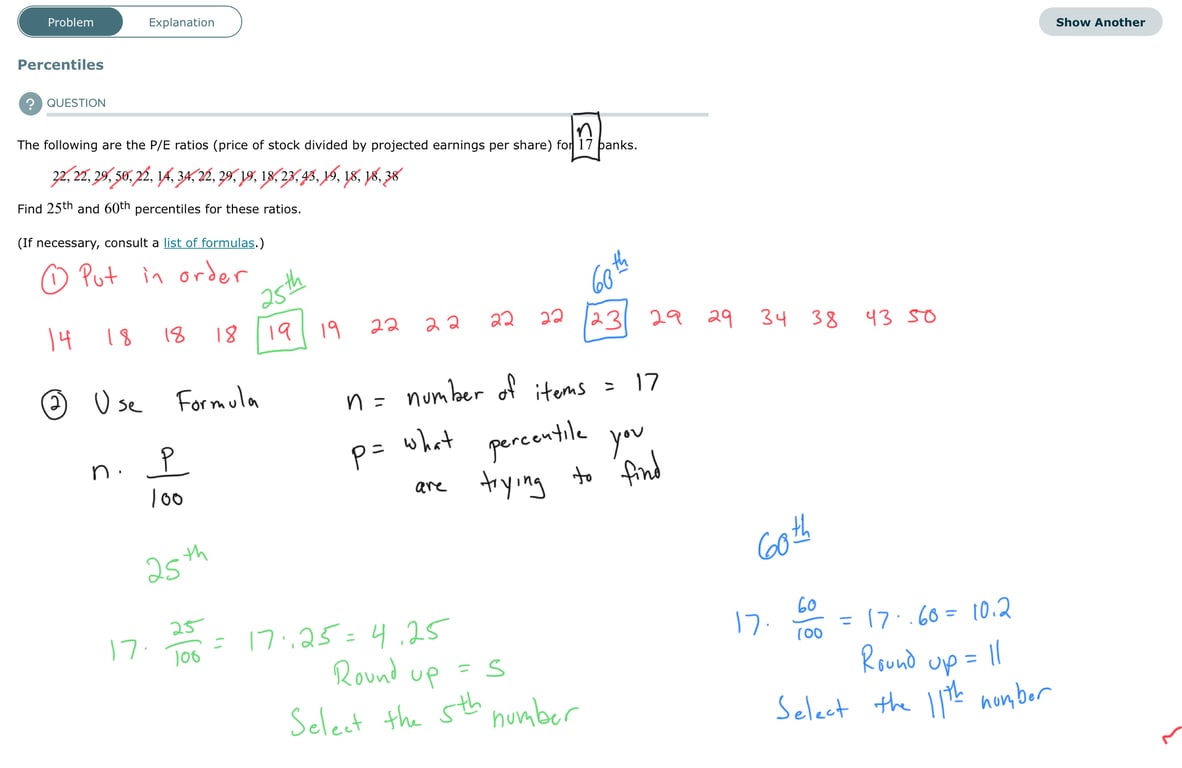 Problem Explanation Show Another
Percentiles
? QUESTION
n
The following are the P/E ratios (price of stock divided by projected earnings per share) for 17 banks.
22, 22, 29, 50, 22, 14, 34, 22, 29, 19, 18, 23, 43, 19, 18, 18, 38
Find 25th and 60th percentiles for these ratios.
(If necessary, consult a list of formulas.)
① Put in order
25th 60th
14 18 18 18 19 19 22 22 22 22 23 29 29 34 38 43 50
② Use Formula
n = number of items = 17
n · P/100
p = what percentile you
are trying to find
25th
17 · 25/100 = 17 · .25 = 4.25
Round up = 5
Select the 5th number
60th
17 · 60/100 = 17 · .60 = 10.2
Round up = 11
Select the 11th number